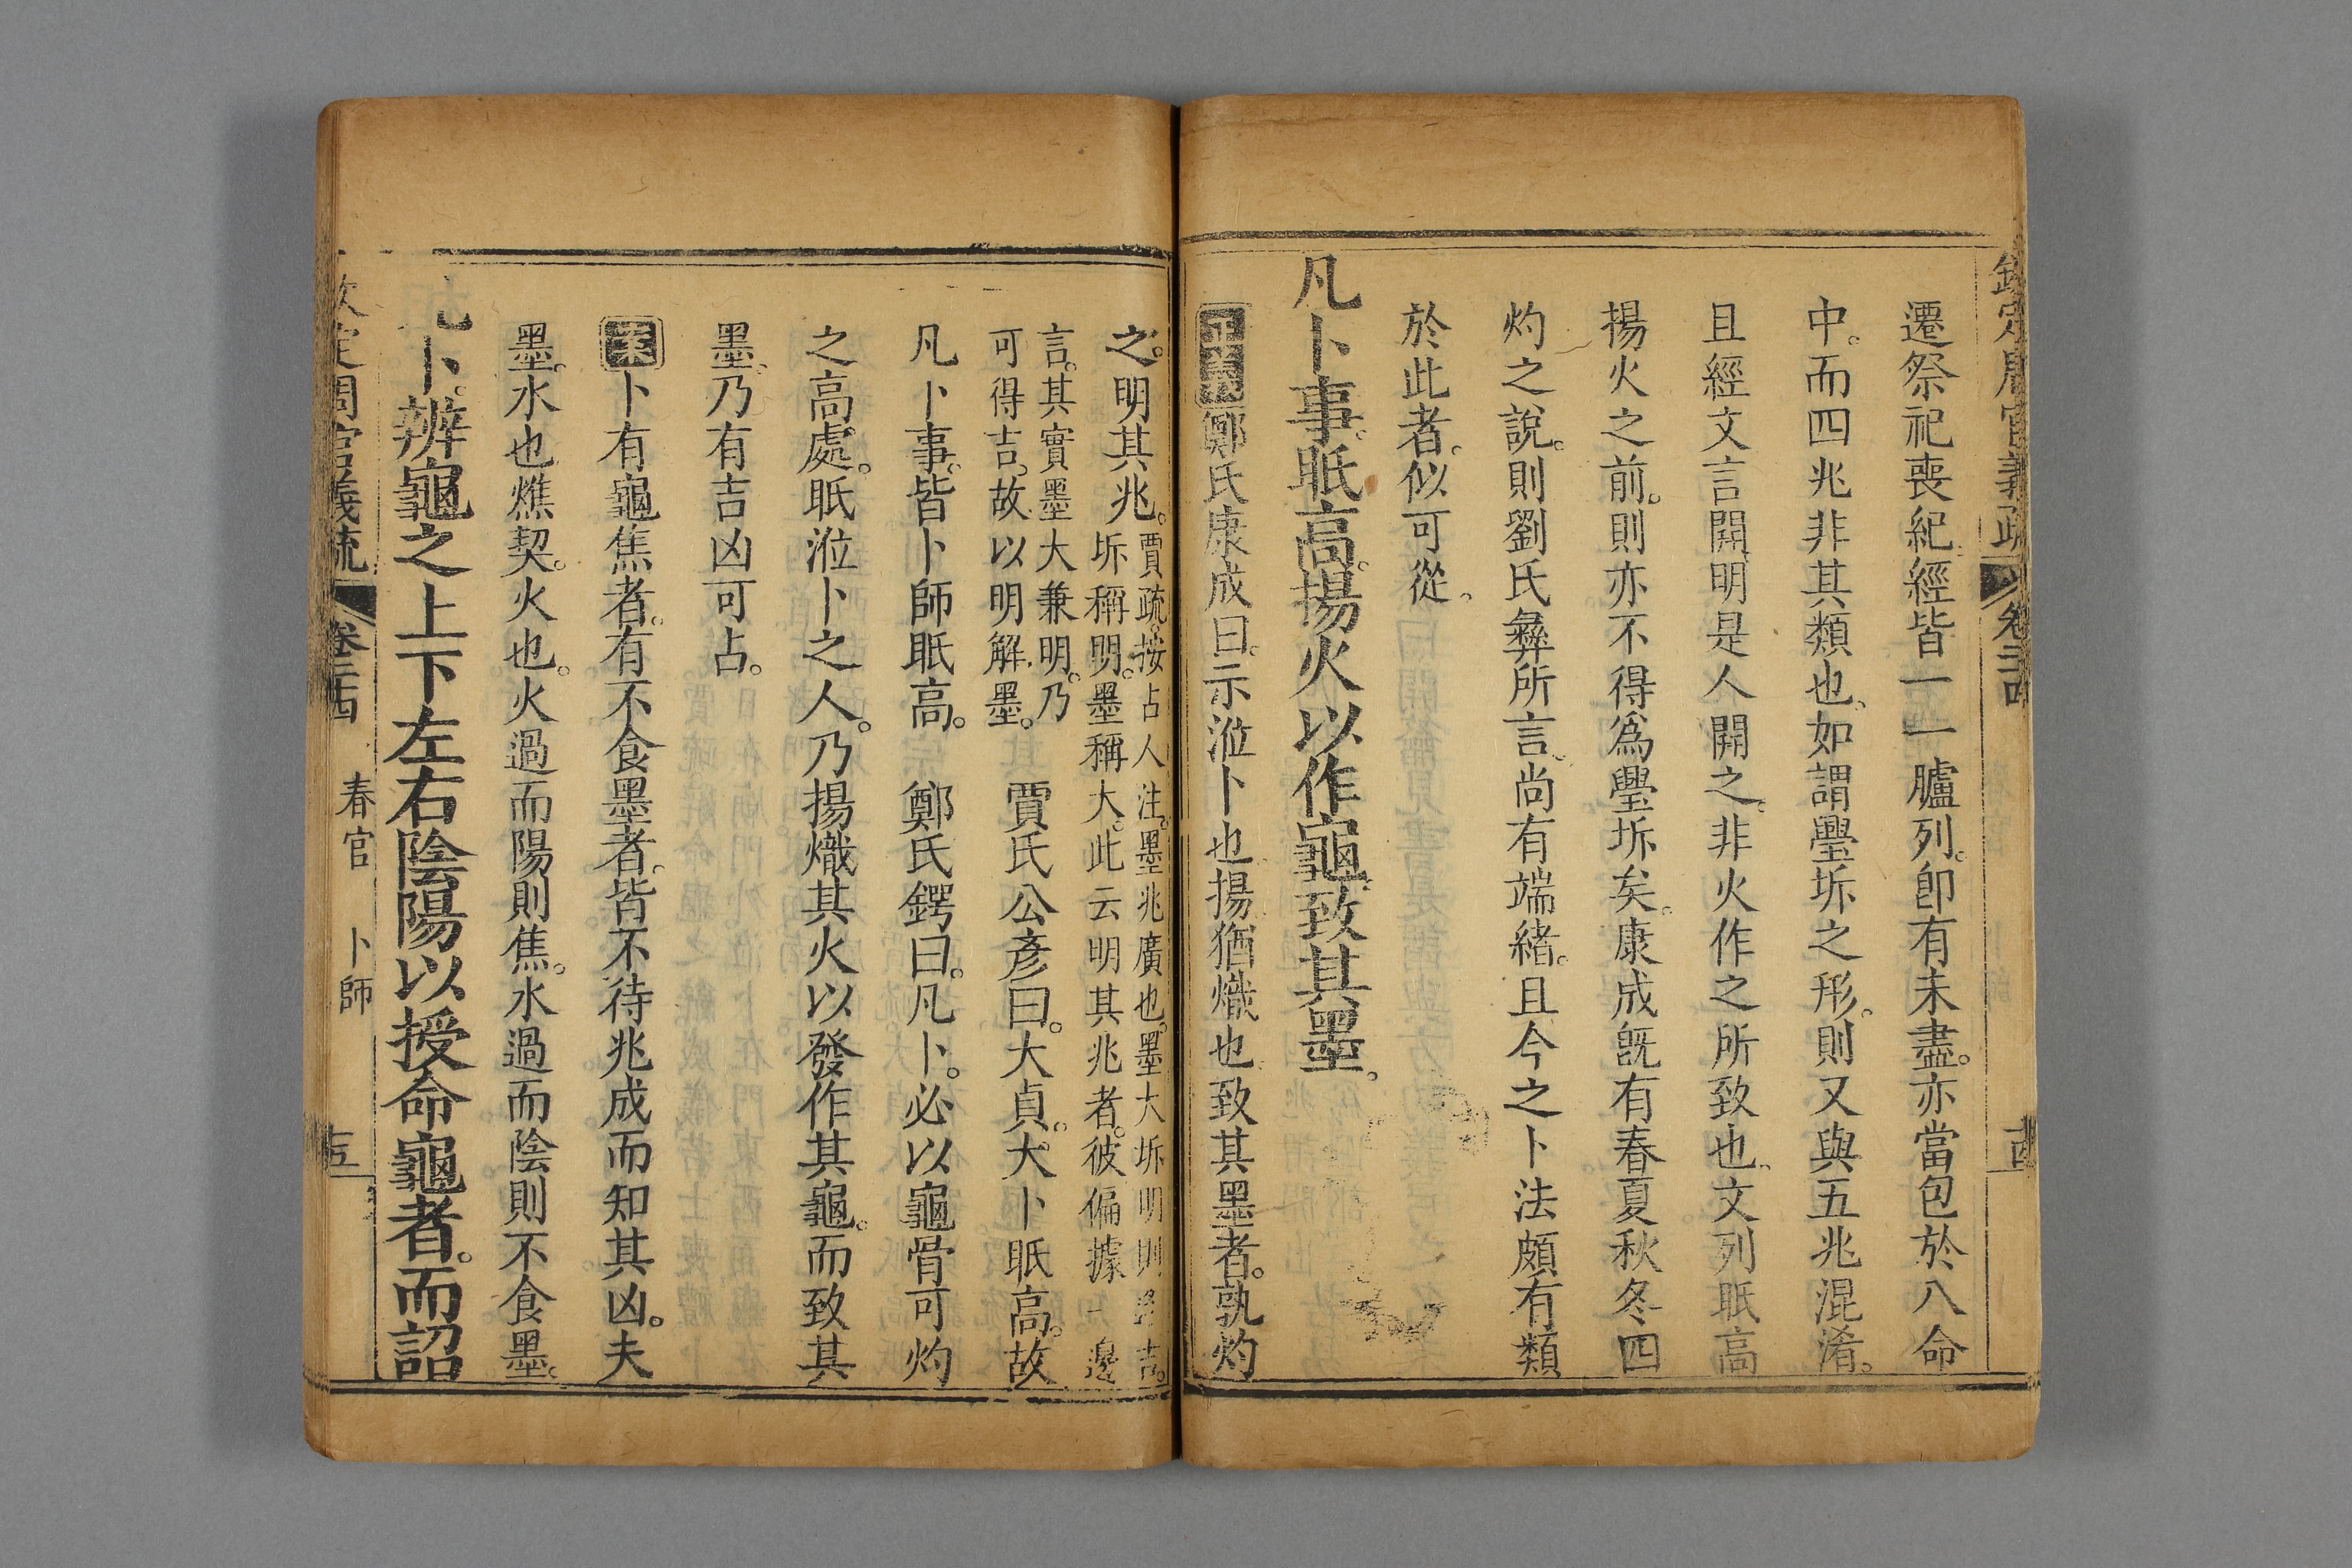 欽定周官義疏 卷二十四 十四
遷祭祀喪紀經皆一一臚列。卽有未盡。亦當包於八命
中。而四兆非其類也。如謂璺坼之形。則又與五兆混淆。
且經文言開明是人開之。非火作之所致也。文列眡高
揚火之前。則亦不得爲璺坼矣。康成旣有春夏秋冬四
灼之說。則劉氏彝所言。尚有端緒。且今之卜法頗有類
於此者。似可從。
凡卜事。眡高。揚火以作龜。致其墨。
正義鄭氏康成曰。示涖卜也。揚猶熾也。致其墨者。孰灼
之。明其兆。
賈疏。按占人注。墨兆廣也。墨大坼明則逢吉。
坼稱明。墨稱大。此云明其兆者。彼偏據一邊
言。其實墨大兼明。乃
可得吉。故以明解墨。
賈氏公彥曰。大貞。大卜眡高。故
凡卜事。皆卜師眡高。 鄭氏鍔曰。凡卜。必以龜骨可灼
之高處。眡涖卜之人。乃揚熾其火以發作其龜。而致其
墨。乃有吉凶可占。
案卜有龜焦者。有不食墨者。皆不待兆成而知其凶。夫
墨。水也。燋契。火也。火過而陽則焦。水過而陰則不食墨。
凡卜。辨龜之上下左右陰陽以授命龜者。而詔
欽定周官義疏 卷二十四 春官 卜師 十五